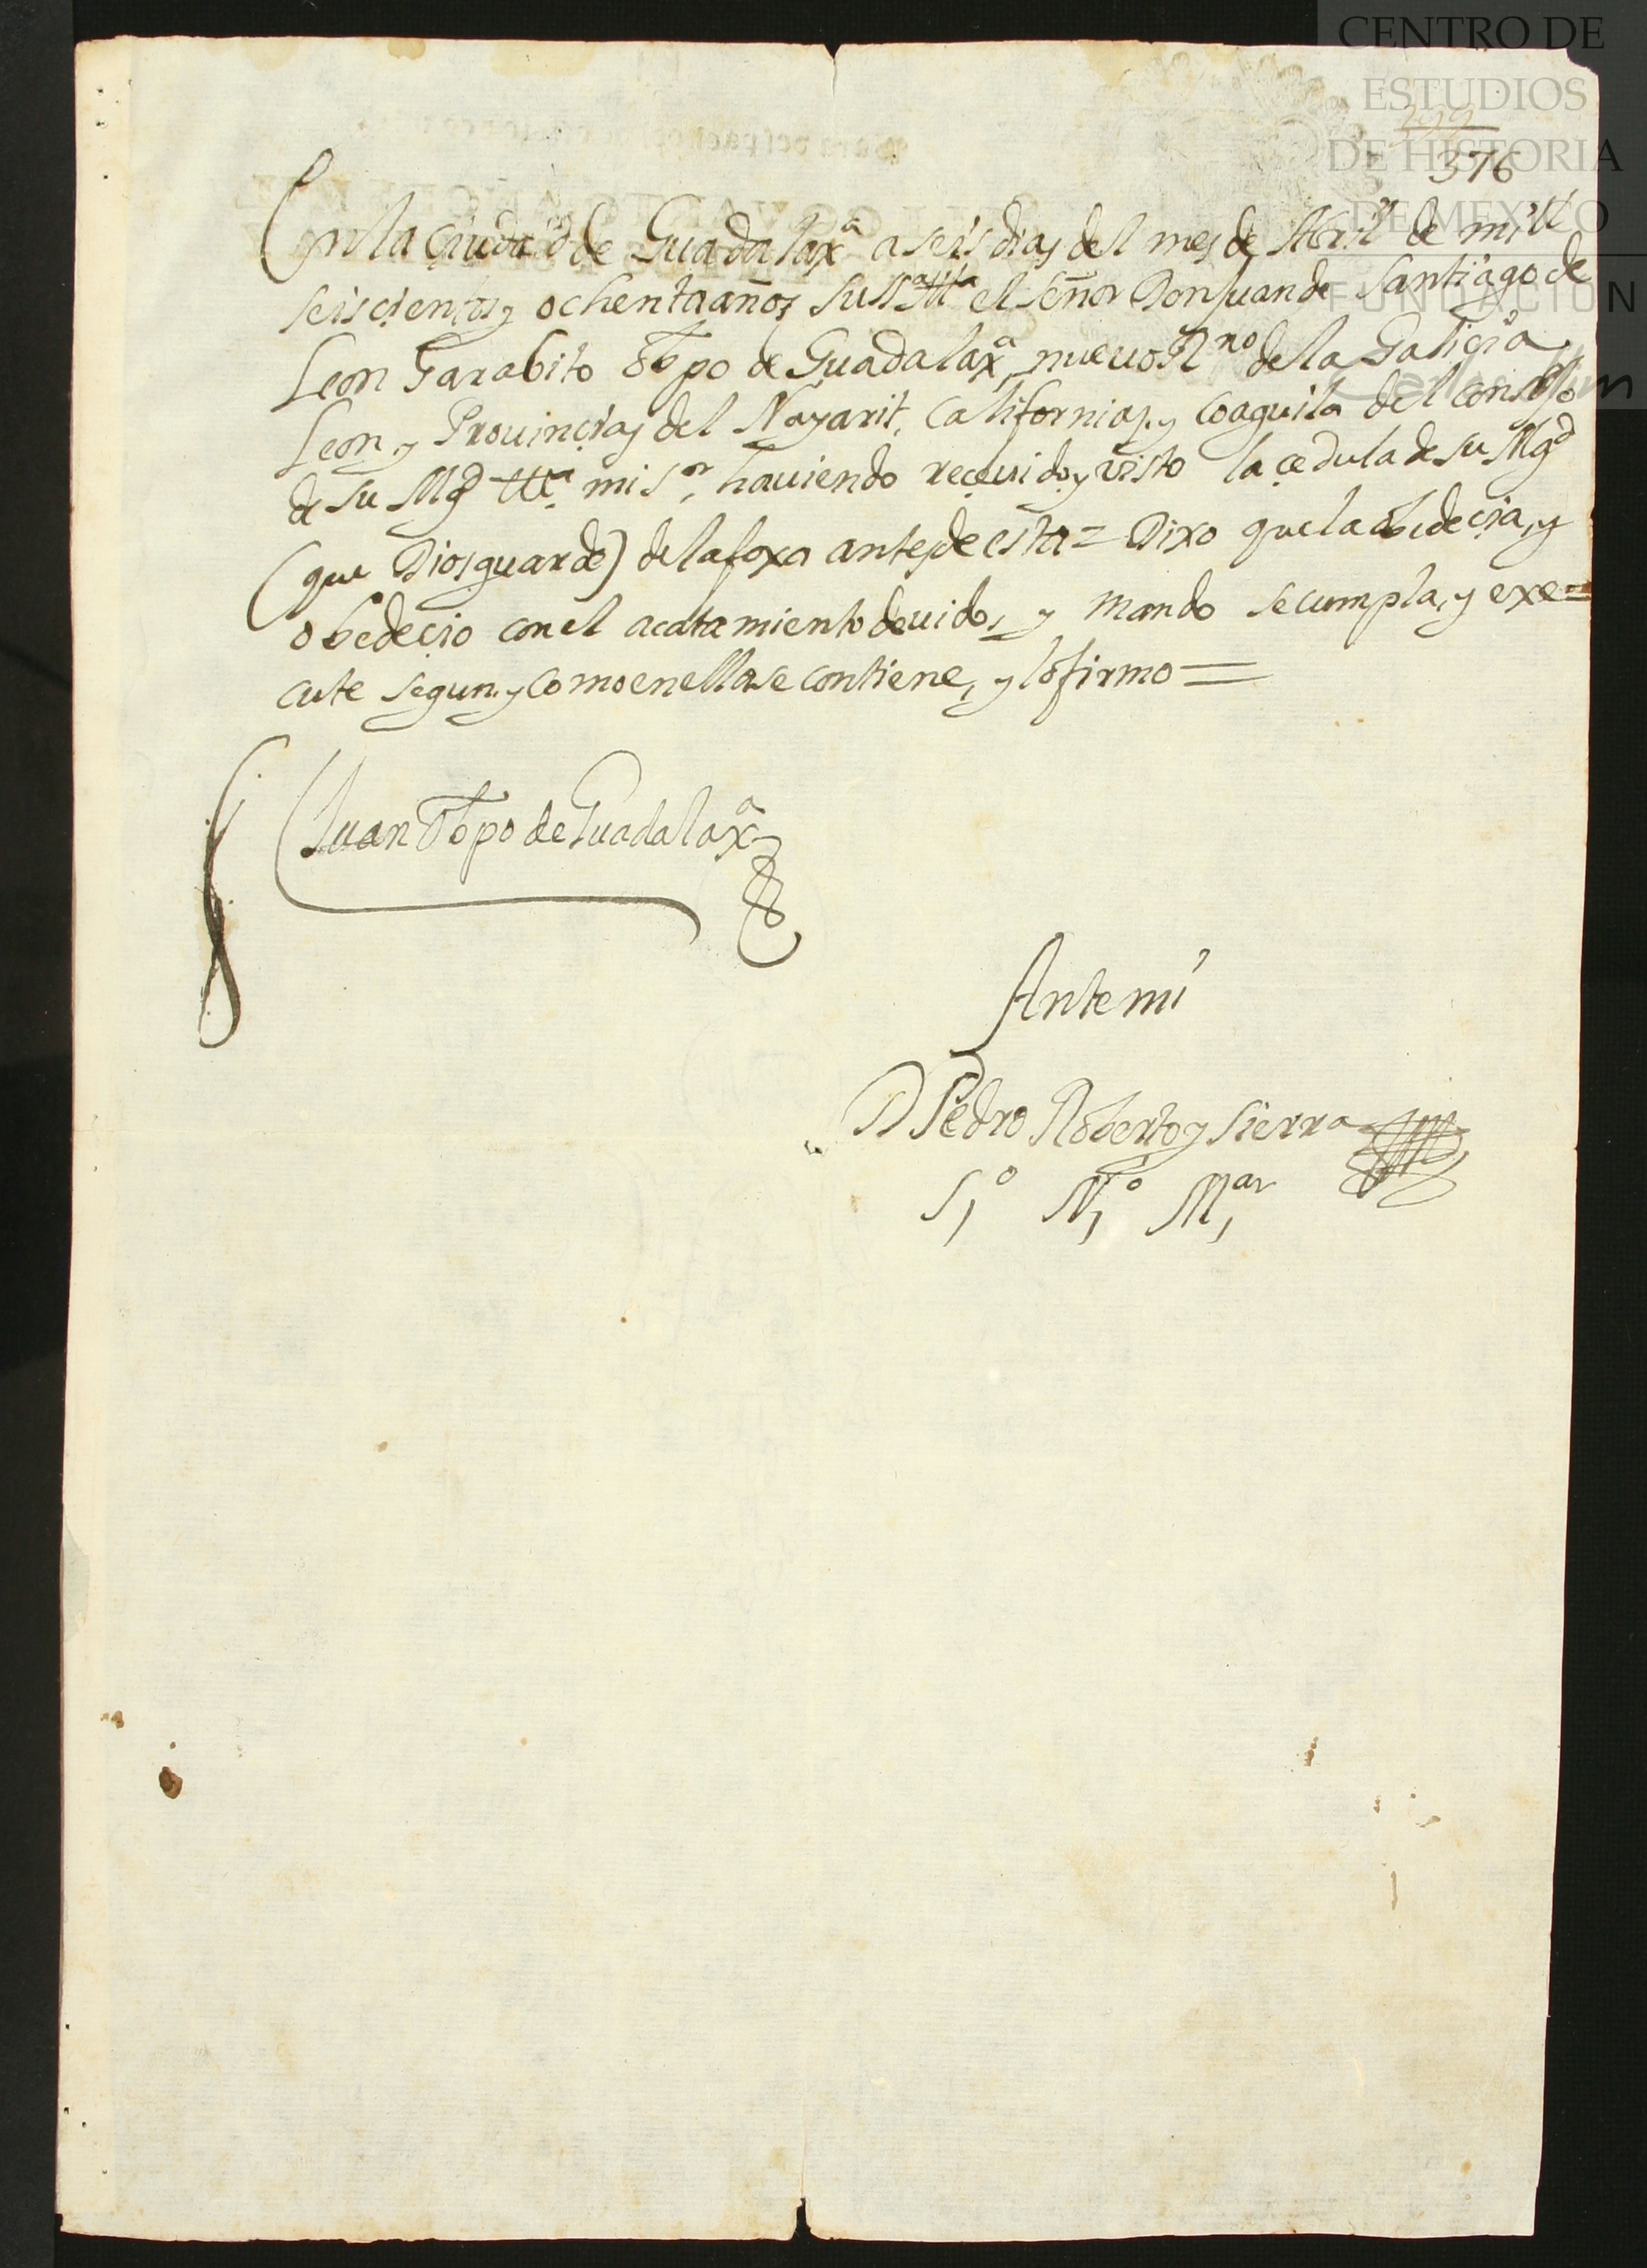 CENTRO DE
ESTUDIOS
DE HISTORIA
DE MEXICO
FUNDACION
376
En la Ciudad de Guadalax.ª a seis dias del mes de Abril de mill
seiscientos y ochenta años su S.ª Ill.ª el señor Don Juan de Santiago de
Leon Garabito Obpo de Guadalax.ª nueuo R.no de la Galicia
Leon, y Prouincias del Nayarit, Californias, y Coaguila del conssejo
de su Mg.d &c.ª mi s.r, hauiendo receuido, y visto la cedula de su Mg.d
(que Dios guarde) de la foxa antes de esta = Dixo que la obedecia, y
obedecio con el acatamiento deuido, y mando se cumpla, y exe=
cute segun, y como en ella se contiene, y lo firmo =
Juan Obpo de Guadalax.ª
Ante mi
D Pedro Roberto y Sierra
S.º N.º M.ar